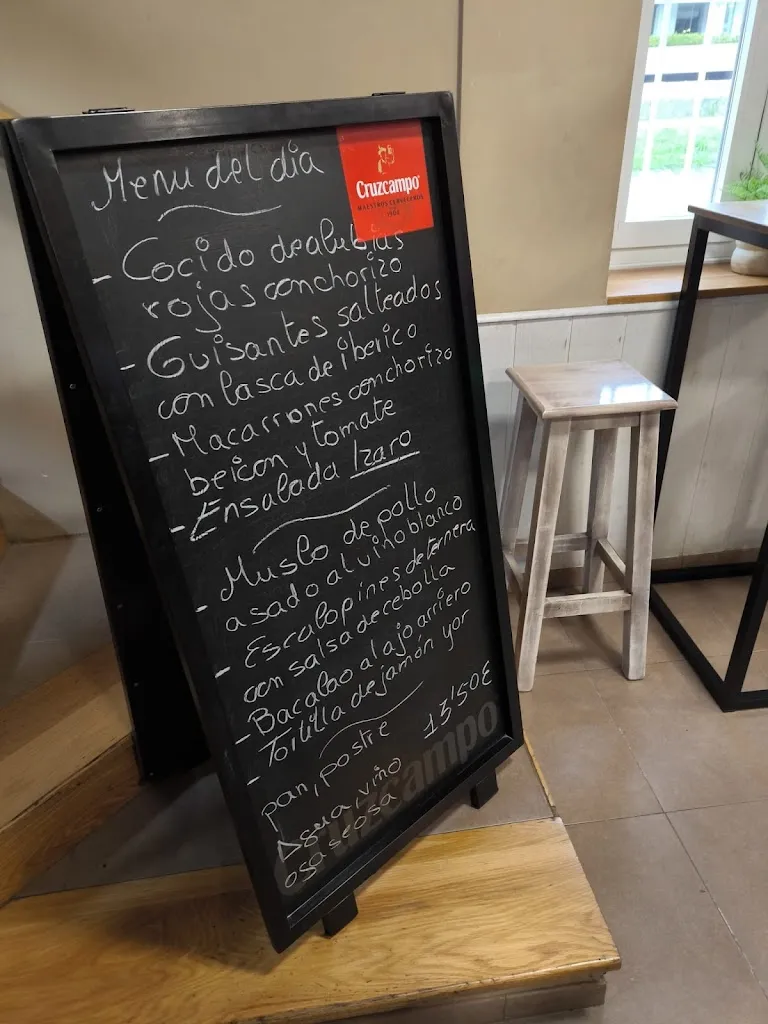 Menu del dia
Cruzcampo
MAESTROS CERVECEROS
1904
- Cocido de alubias
rojas con chorizo
- Guisantes salteados
con lasca de iberico
- Macarrones con chorizo
beicon y tomate
- Ensalada Izaro
- Muslo de pollo
asado al vino blanco
- Escalopines de ternera
con salsa de cebolla
- Bacalao al ajo arriero
- Tortilla de jamón yor
pan, postre 13'50€
Agua, vino
o gaseosa
Cruzcampo